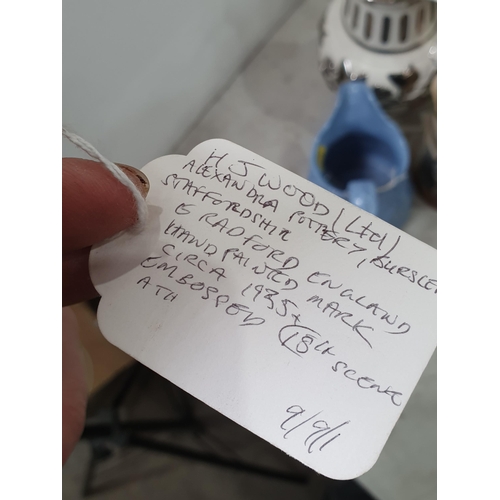 H J WOOD (Ltd)
ALEXANDRA POTTERY, BURSLEM
STAFFORDSHIR
E RADFORD ENGLAND
HAND PAINTED MARK
CIRCA 1935+
EMBOSSED SCENE
ATH
9/9/1